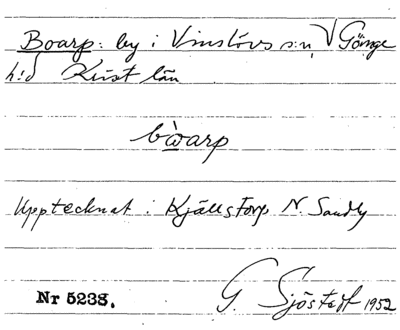 Boarp: by i Vinslövs s:n, V Göinge
h:d Krist län
bòarp
Upptecknat i Kjällstorp N. Sandby
Nr 5238. G. Sjöstedt 1952